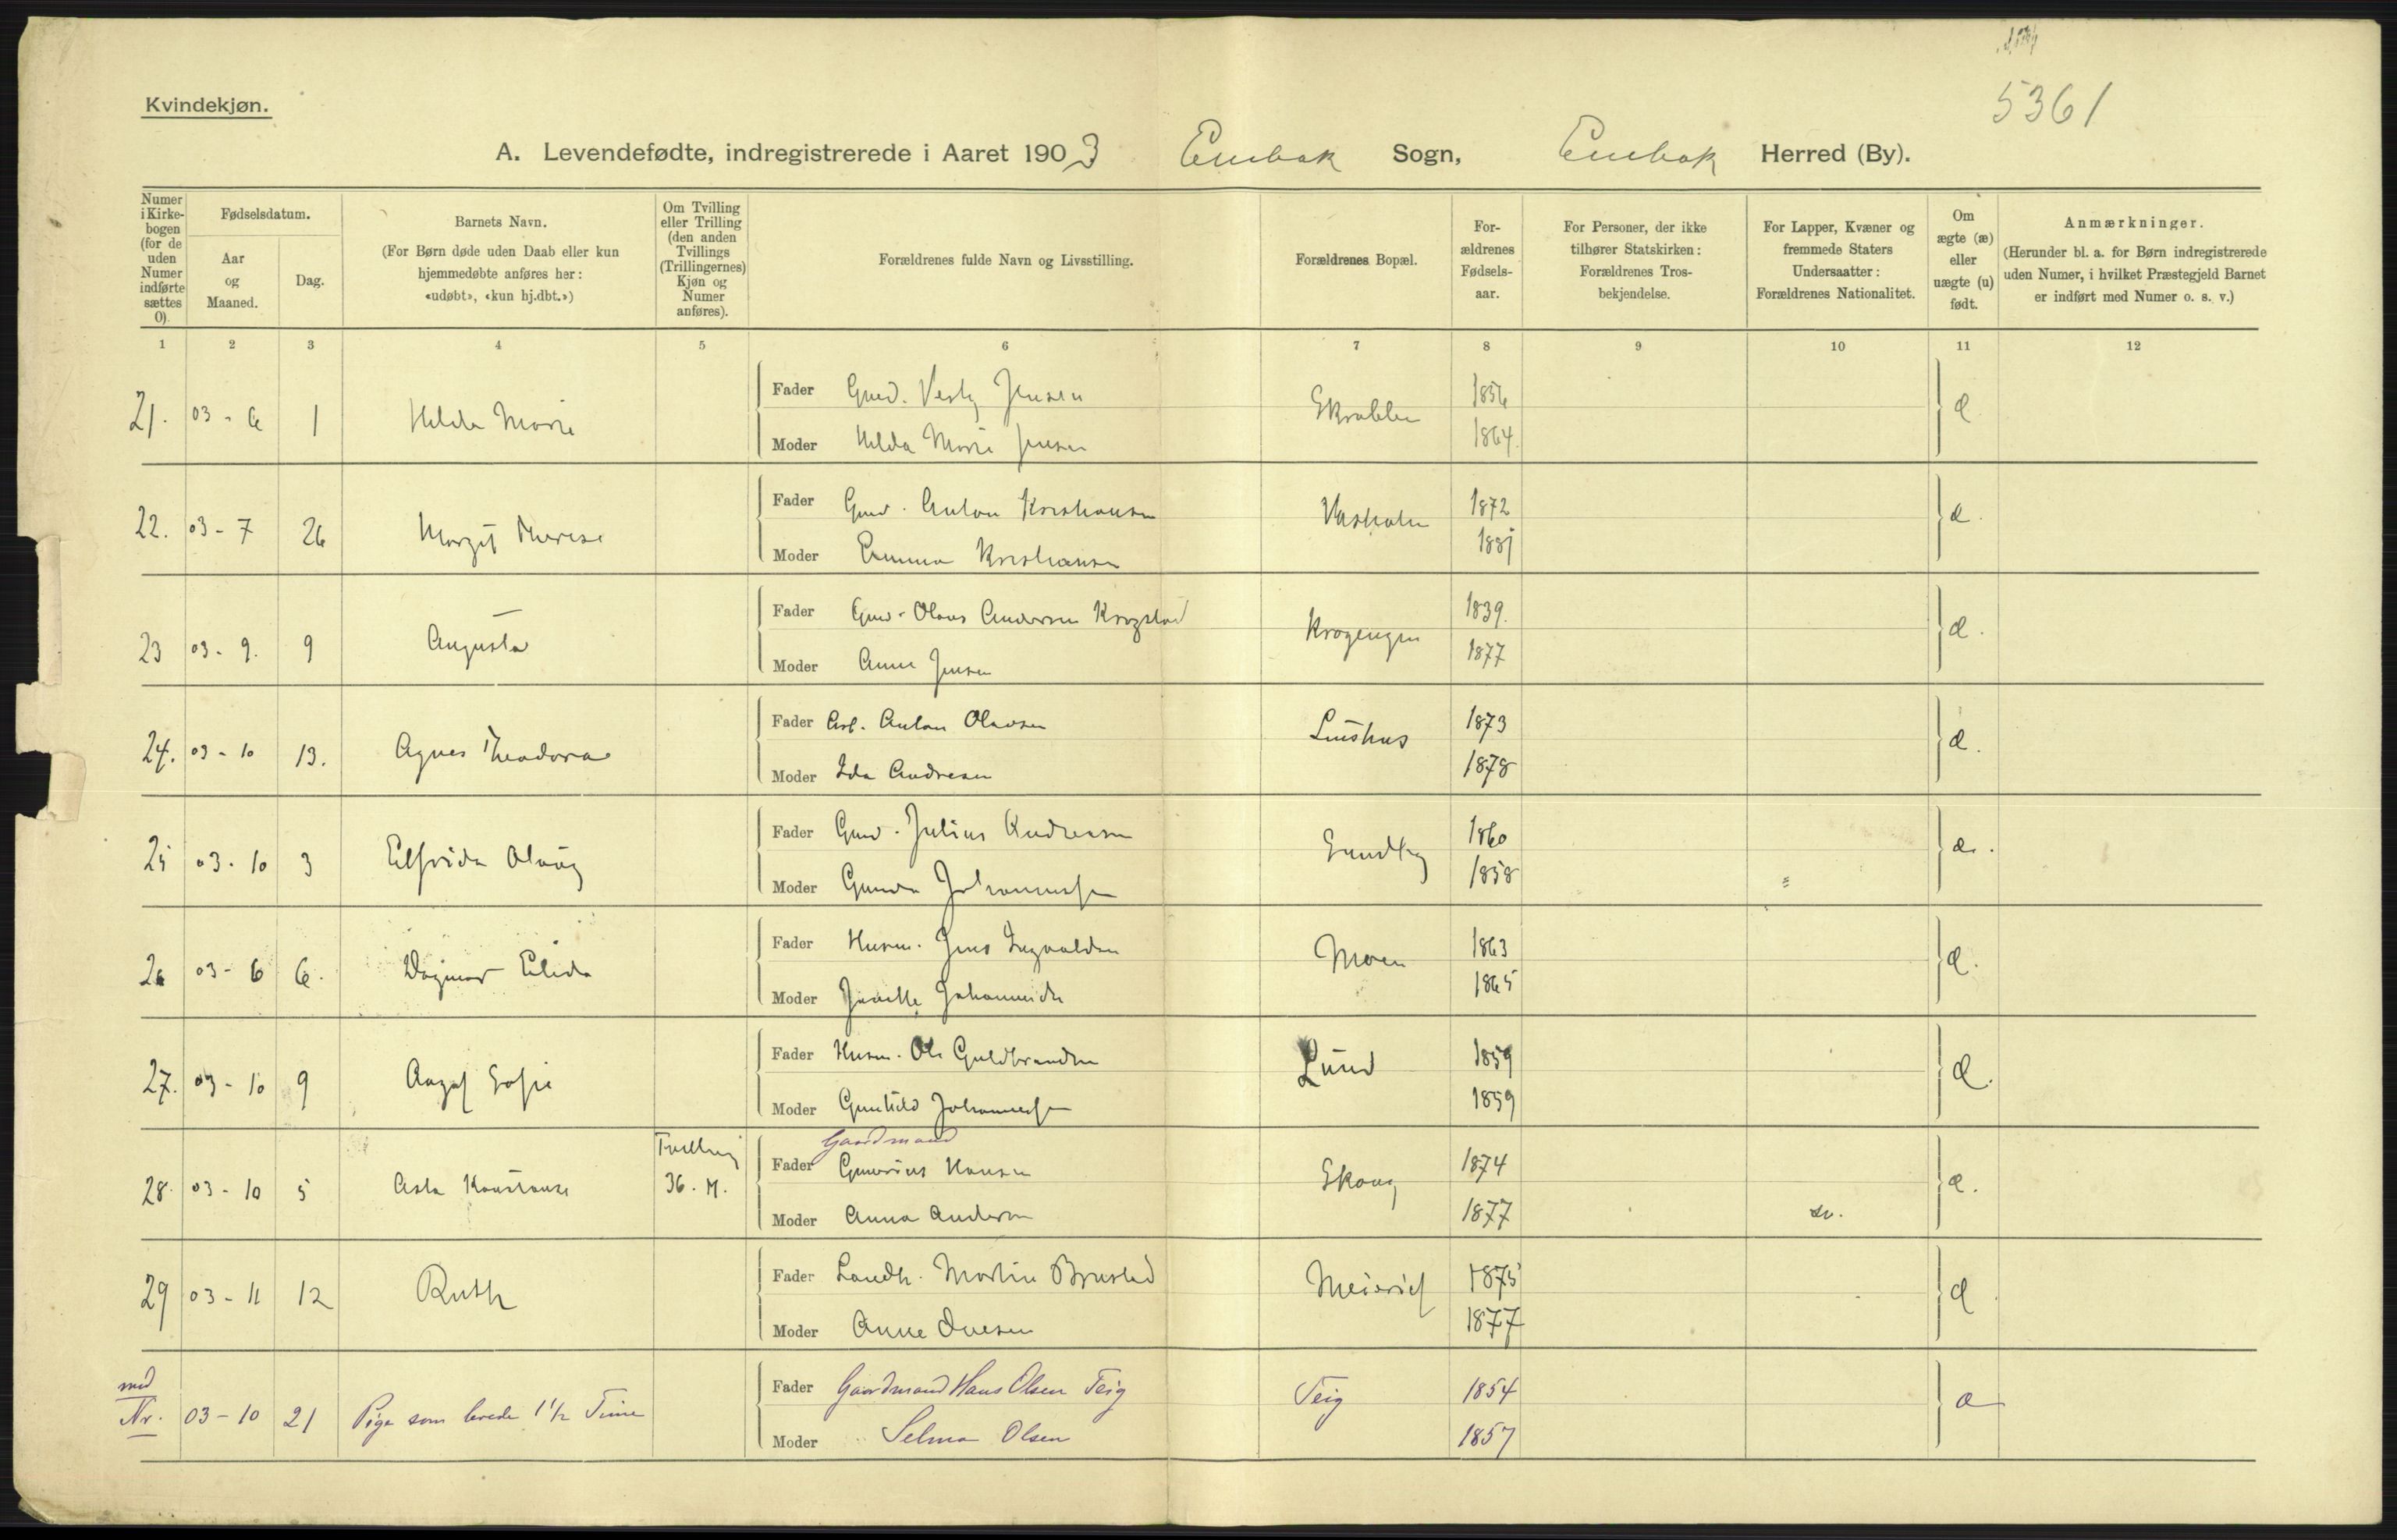 5361
Kvindekjøn.
A. Levendefødte, indregistrerede i Aaret 1903 Enebak Sogn, Enebak Herred (By).
Numer i Kirkebogen (for de uden Numer indførte sættes 0).
Fødselsdatum.
Aar og Maaned.
Dag.
Barnets Navn.
(For Børn døde uden Daab eller kun
hjemmedøbte anføres her:
«udøbt», «kun hj.dbt.»)
Om Tvilling eller Trilling (den anden Tvillings (Trillingernes) Kjøn og Numer anføres).
Forældrenes fulde Navn og Livsstilling.
Forældrenes Bopæl.
For-ældrenes Fødsels-aar.
For Personer, der ikke tilhører Statskirken: Forældrenes Tros-bekjendelse.
For Lapper, Kvæner og fremmede Staters Undersaatter: Forældrenes Nationalitet.
Om ægte (æ) eller uægte (u) født.
Anmærkninger.
(Herunder bl. a. for Børn indregistrerede
uden Numer, i hvilket Præstegjeld Barnet
er indført med Numer o. s. v.)
1 2 3 4 5 6 7 8 9 10 11 12
21. 03 - 6 1 Hilda Marie Fader Gmd. Jensen 1856 æ
Moder Hilda Marie Jensen 1864.
22. 03 - 7 26 Margit Therese Fader Gmd. Anton Kristiansen 1872 æ.
Moder Emma Kristiansen 1881
23 03 - 9. 9 Augusta Fader Gmd. Olaus Andersen Krogstad Krogengen 1839. æ.
Moder Anne Jensen 1877
24. 03 - 10 13. Agnes Theodora Fader Arb. Anton Olavsen 1873 æ.
Moder Ida Andresen 1878
25 03 - 10 3 Elfrida Olaug Fader Gmd. Julius Andresen Sundby 1860 æ.
Moder Gunda Johannessen 1858
26 03 - 6 6. Dagmar Elida Fader Husm. Jens Ingvaldsen Moen 1863 æ.
Moder 1865
27. 03 - 10 9 Aagot Sofie Fader Husm. Ole Guldbrandsen Lund 1859 æ.
Moder Gunhild Johannessen 1859
28. 03 - 10 5 Asta Konstanse Tvilling 36. M. Gaardmand
Fader Gunerius Hansen Skoug 1874 æ.
Moder Anna Andersen 1877 sv.
29 03 - 11 12 Ruth Fader Landh. Martin Brustad Meieriet 1875 æ
Moder Anne Iversen 1877
Nr. 03 - 10 21 Pige som levede 1 1/2 Time Fader Gaardmand Hans Olsen Teig Teig 1854 æ
Moder Selma Olsen 1857